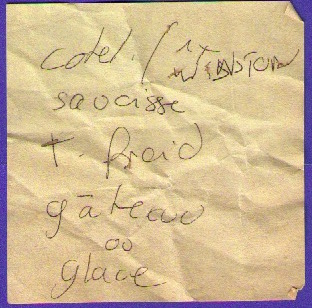 cotel. /
saucisse
+ froid
gâteau
ou
glace